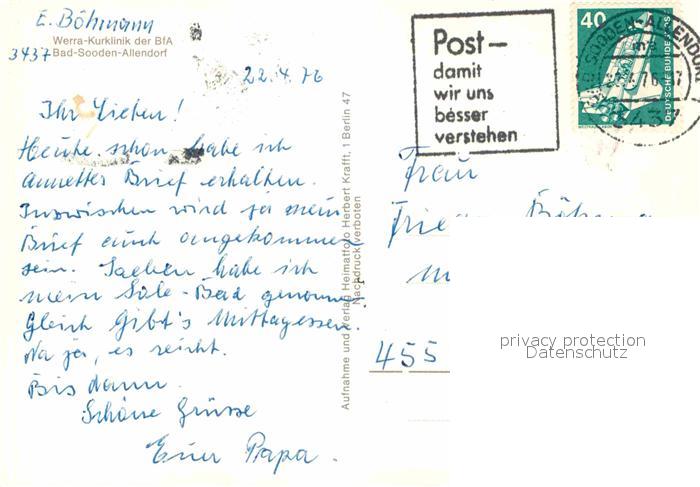 E. Böhmann
Werra-Kurklinik der BfA
3437 Bad-Sooden-Allendorf
22.4.76
Ihr Lieben!
Heute schon habe ich
Annettes Brief erhalten.
Inzwischen wird ja mein
Brief auch angekommen
sein. Soeben habe ich
mein Sole-Bad genommen.
Gleich gibt's Mittagessen.
Na ja, es reicht.
Bis dann.
Schöne Grüsse
Euer Papa.
Aufnahme und Verlag Heimatfoto Herbert Krafft, 1 Berlin 47
Nachdruck verboten
Post-
damit
wir uns
besser
verstehen
40
DEUTSCHE BUNDESPOST
SOODEN-ALLENDORF
3437
Frau
455
privacy protection
Datenschutz